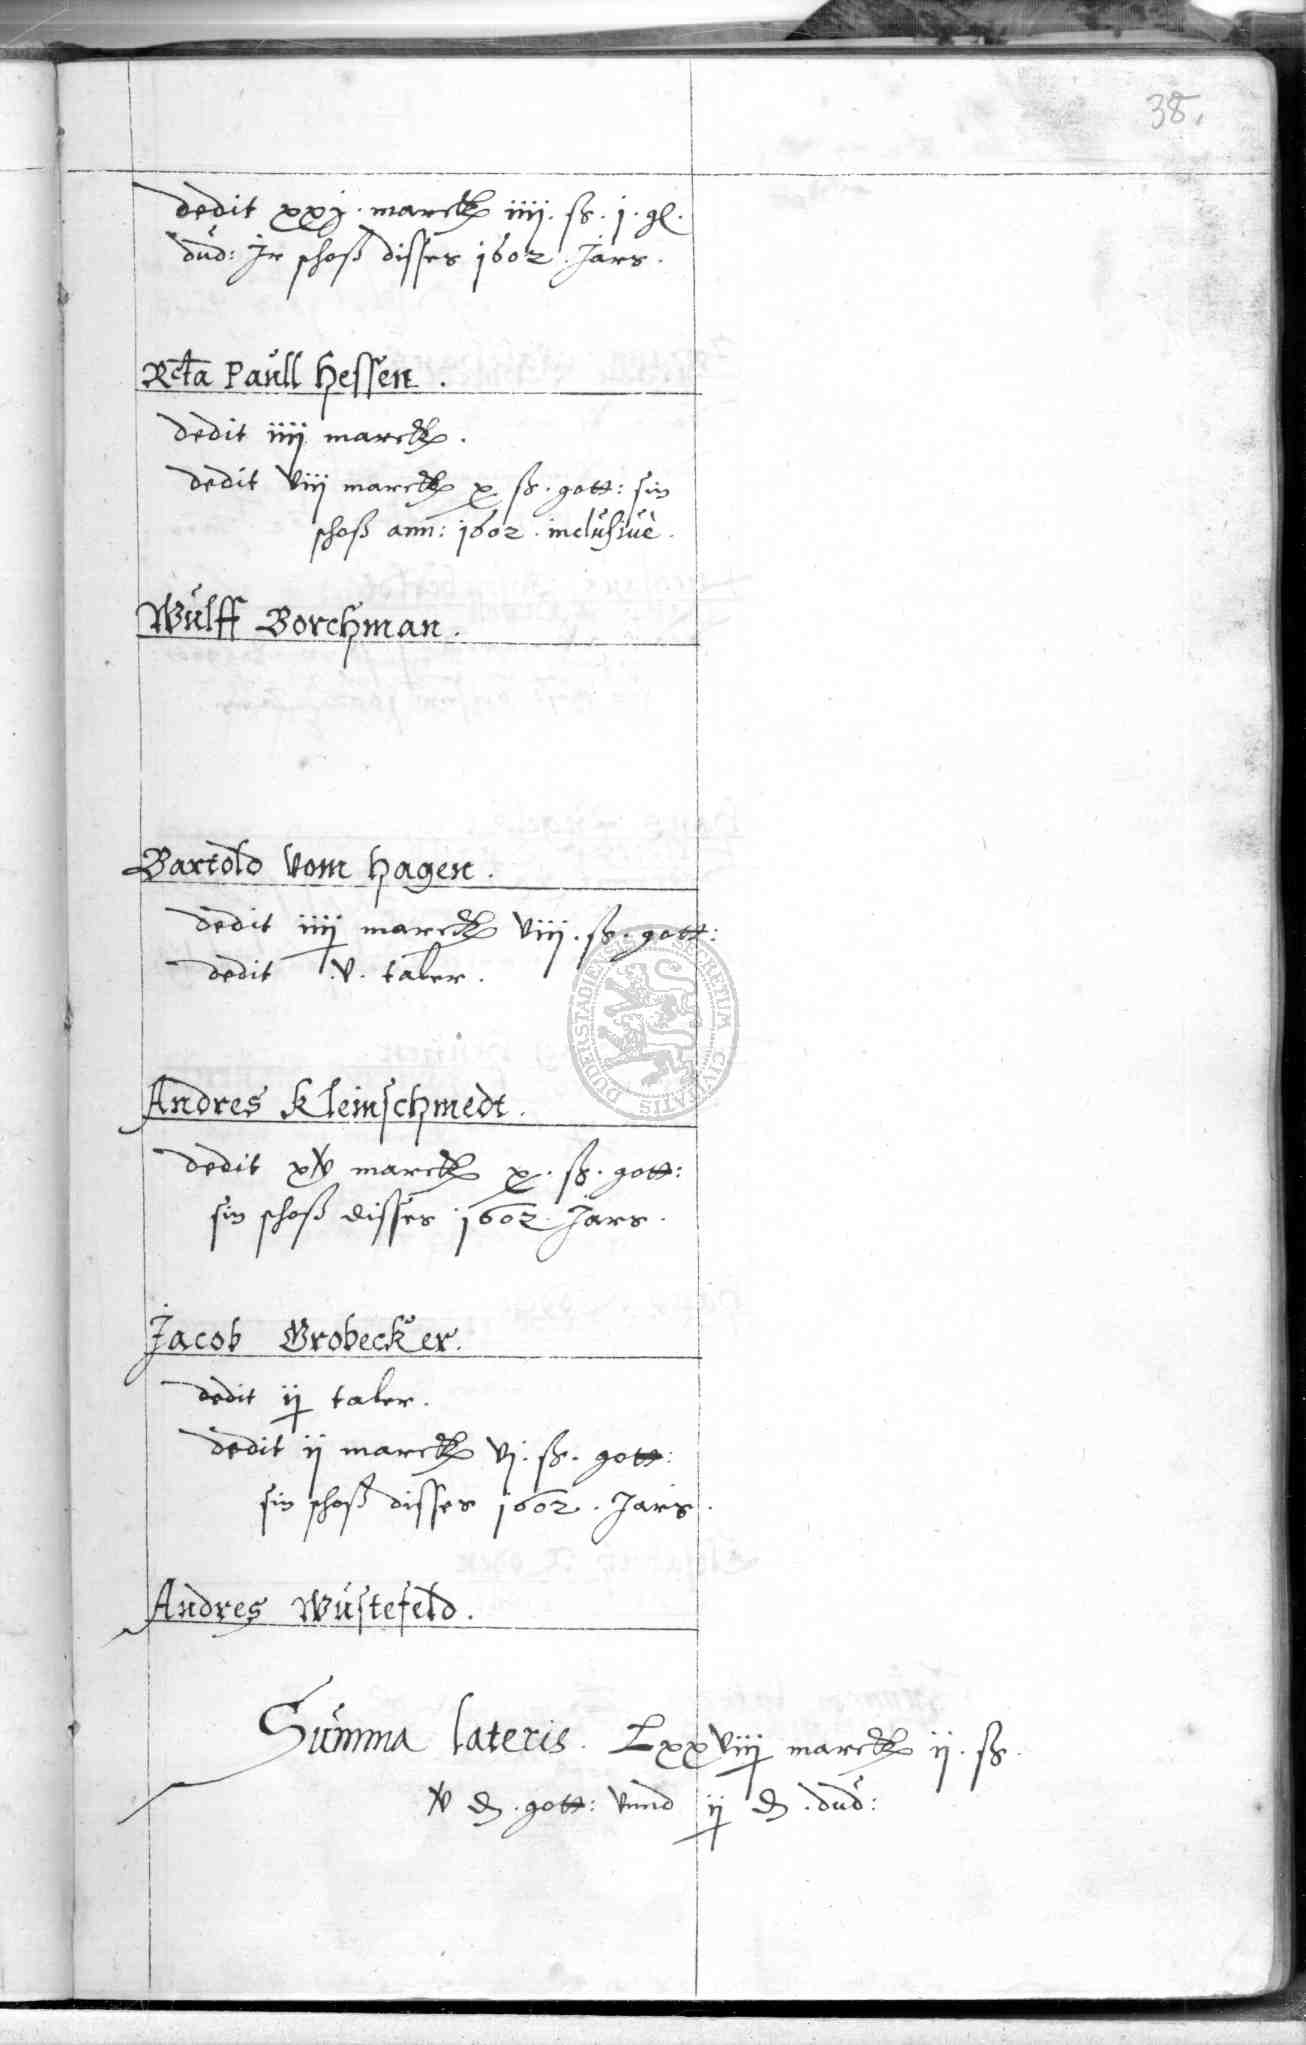 38.
dedit xxj. marck iiij. ß. j. gl.
dud: Jr schoß disses 1602. Jars.
Rcta Paull Hessen.
dedit iiij marck.
dedit viij marck x ß. gott: sin
schoß ann: 1602. inclusiue.
Wulff Borchman.
Bartold vom Hagen.
dedit iiij marck viij. ß. gott:
dedit .v. taler.
SECRETUM CIVITATIS DUDERSTADIENSIS
Andres Kleinschmedt.
dedit xv marck x. ß. gott:
sin schoß disses 1602. Jars.
Jacob Grobecker.
dedit ij taler.
dedit ij marck vj. ß. gott:
sin schoß disses 1602. Jars.
Andres Wustefeld.
Summa lateris. Lxxviij marck ij. ß.
v ₰. gott: vnnd ij ₰. dud: